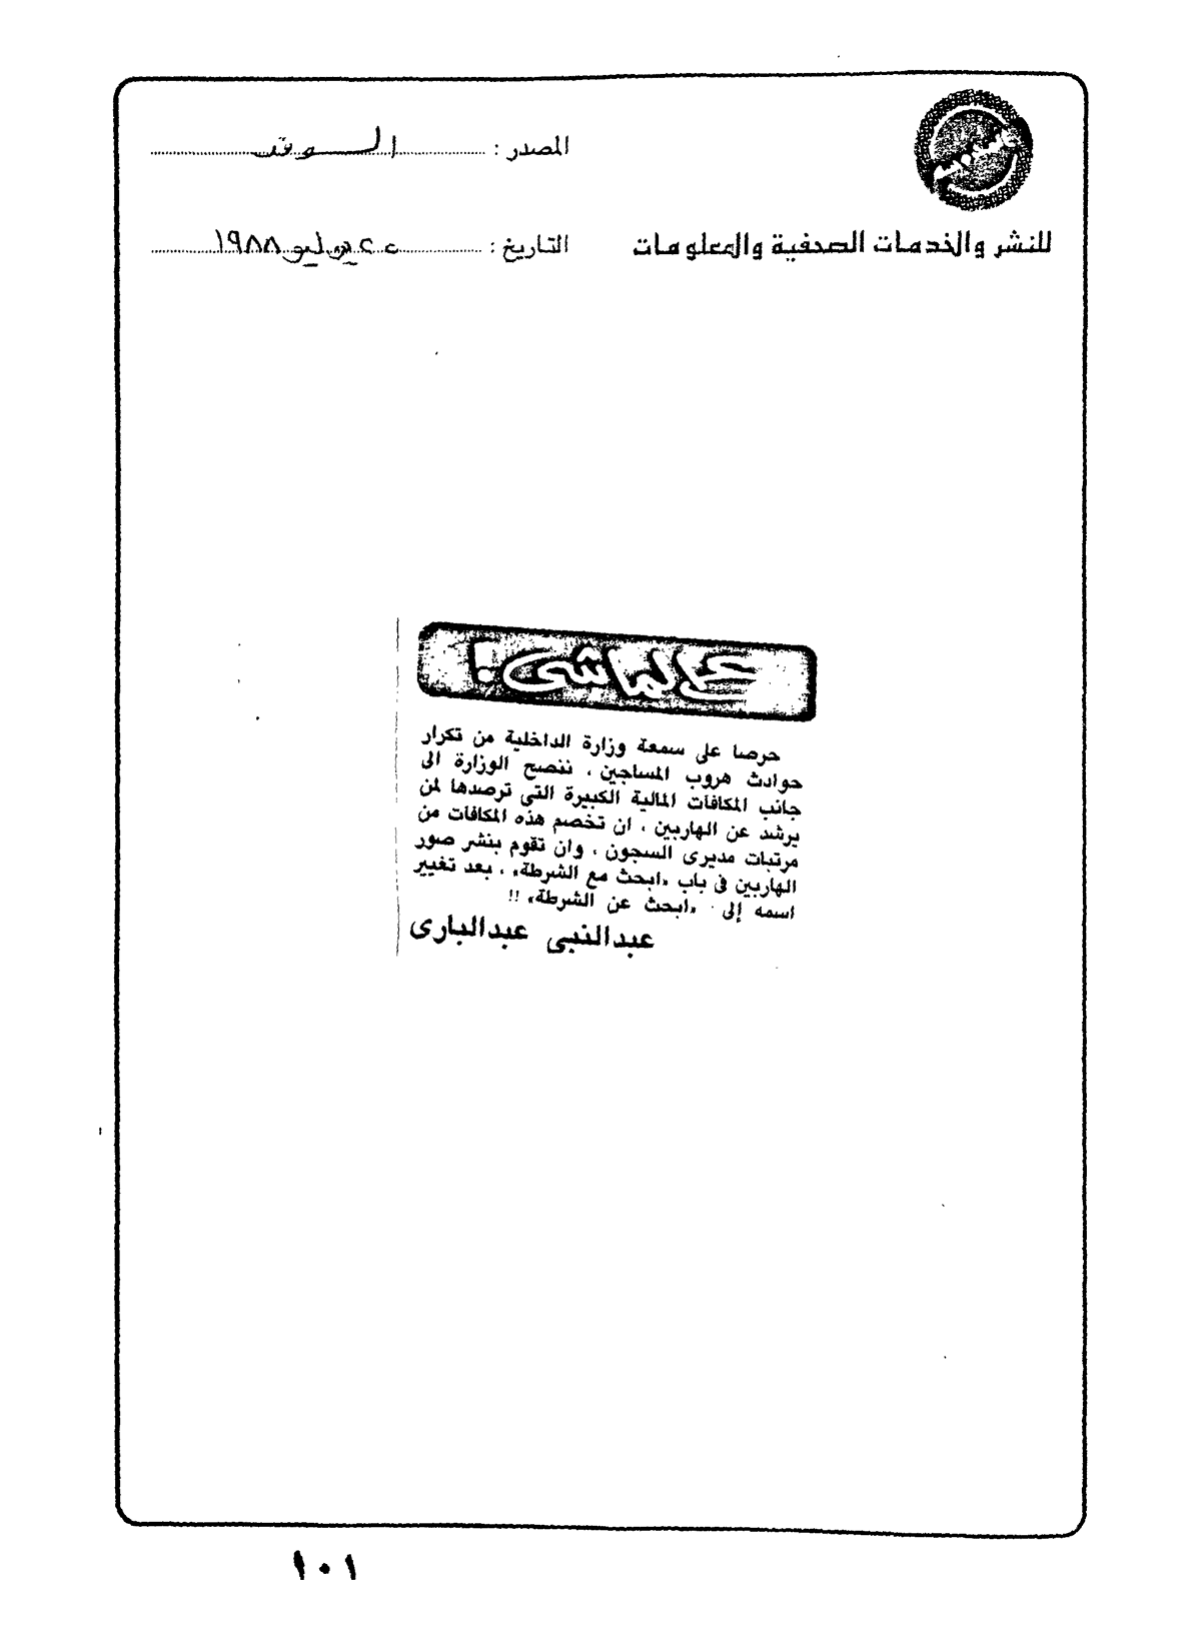 المصدر : الـوفد
للنشر والخدمات الصحفية والمعلومات
التاريخ : يوليو ١٩٨٨
عالماشى !
حرصا على سمعة وزارة الداخلية من تكرار
حوادث هروب المساجين ، ننصح الوزارة الى
جانب المكافات المالية الكبيرة التى ترصدها لمن
يرشد عن الهاربين ، ان تخصم هذه المكافات من
مرتبات مديرى السجون ، وان تقوم بنشر صور
الهاربين فى باب «ابحث مع الشرطة» ، بعد تغيير
اسمه إلى «ابحث عن الشرطة» !!
عبدالنبى عبدالبارى
١٠١